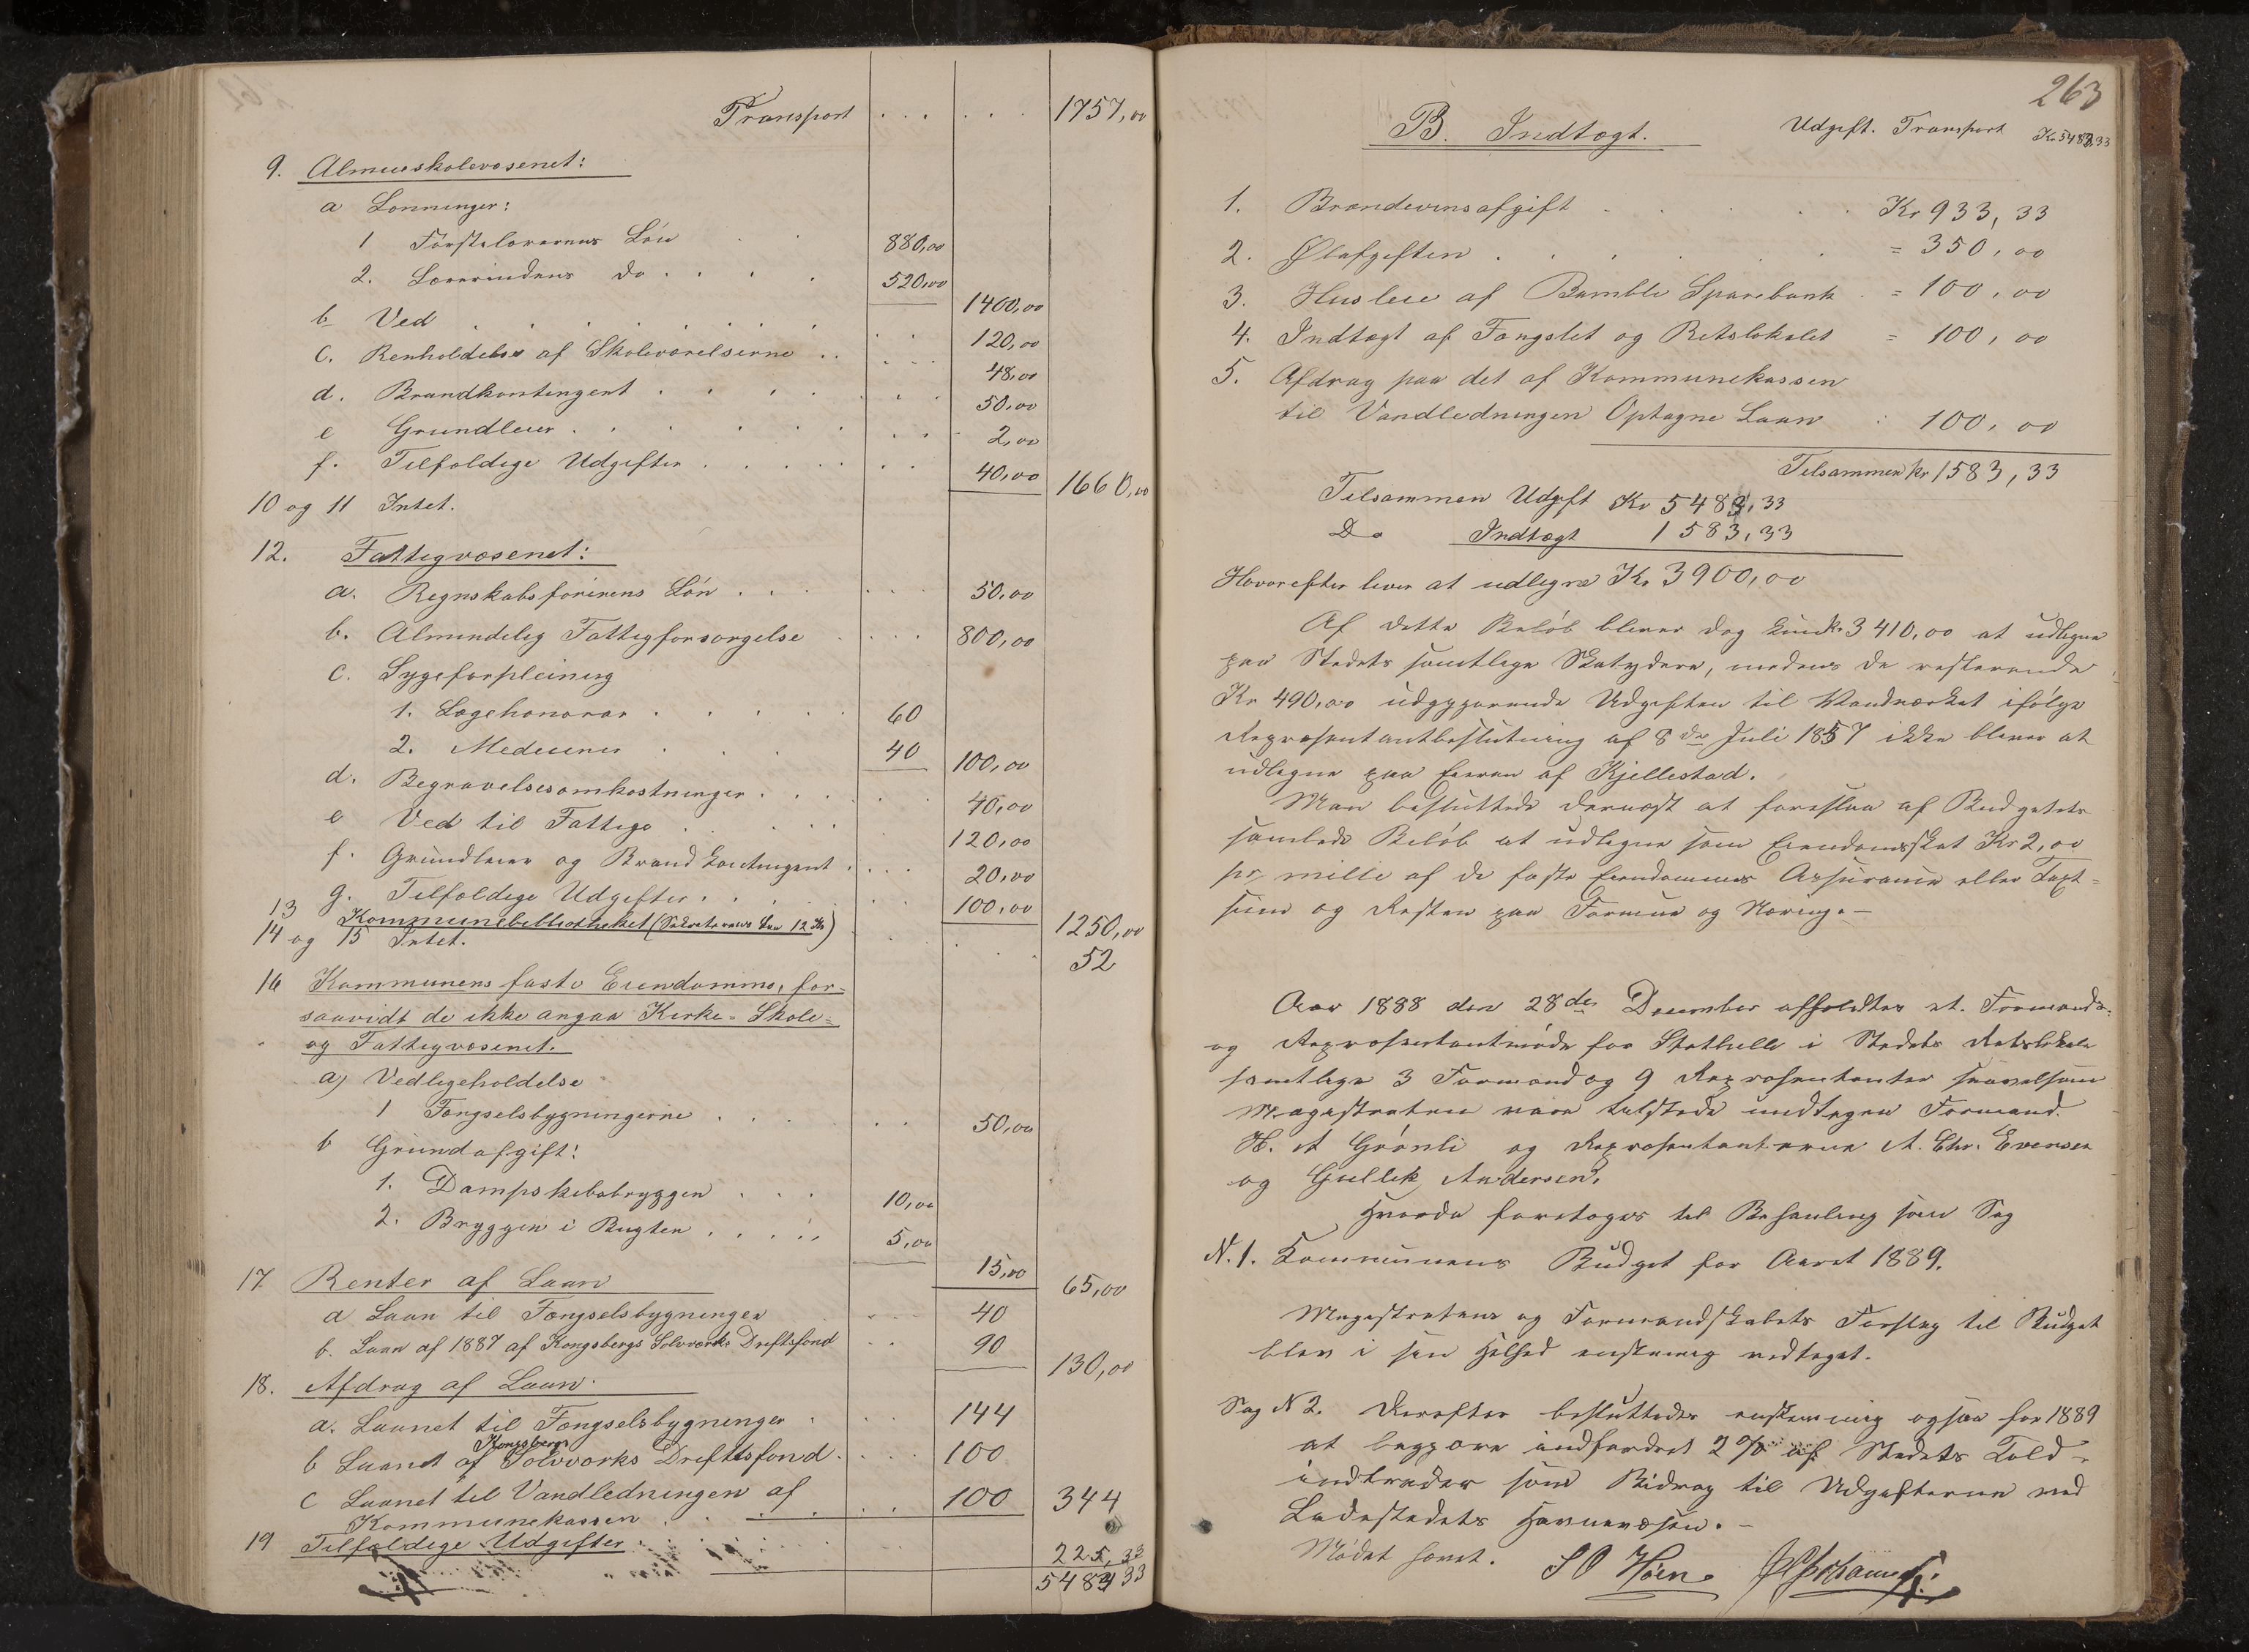 Transport . . . . . . 1757,00
9. Almueskolevæsenet:
a Lønninger:
1 Førstelærerens Løn . . 880,00
2. Lærerindens Do . . . . 520,00 1400,00
b Ved . . . . . . . . 120,00
c. Renholdelse af Skoleværelserne . . 48,00
d. Brandkontingent . . . . 50,00
e Grundleier . . . . . . 2,00
f. Tilfældige Udgifter . . . . . 40,00 1660,00
10 og 11 Intet.
12. Fattigvæsenet:
a. Regnskabsførerens Løn . . . 50,00
b. Almindelig Fattigforsørgelse . . . 800,00
c. Sygeforpleining
1. Lægehonorar . . . . . 60
2. Medeciner . . . 40 100,00
d. Begravelsesomkostninger . . . 40,00
e Ved til Fattige . . . . 120,00
f. Grundleier og Brandkontingent . . . 20,00
g. Tilfældige Udgifter . . . 100,00 1250,00
13 Kommunebibliotheket (Løn 12 Kr) 52
14 og 15 Intet.
16 Kommunens faste Eiendomme, for-
saavidt de ikke angaa Kirke- Skole-
og Fattigvæsenet.
a) Vedligeholdelse
1 Fængselsbygningerne . . . 50,00
b Grundafgift:
1. Dampskibsbryggen . . . 10,00
2. Bryggen i Bugten . . . . . 5,00 15,00 65,00
17 Renter af Laan
a Laan til Fængselsbygningen . . . 40
b. Laan af 1887 af Kongsbergs Sølvværks Driftsfond . . 90 130,00
18. Afdrag af Laan
a. Laanet til Fængselsbygningen . . . 144
b Laanet af Kongsbergs Sølvværks Driftsfond . . . 100
c Laanet til Vandledningen af . . 100 344
Kommunekassen . . . .
19 Tilfældige Udgifter . . . . 225,33
5483 33
263
B. Indtægt. Udgift. Transport Kr 5483,33
1. Brændevinsafgift . . . . Kr 933, 33
2. Ølafgiften . . . . . . = 350, 00
3. Husleie af Bamble Sparebank . = 100, 00
4. Indtægt af Fængslet og Retslokalet = 100, 00
5. Afdrag paa det af Kommunekassen
til Vandledningen Optagne Laan : 100, 00
Tilsammen kr 1583, 33
Tilsammen Udgift Kr 5483,33
Do Indtægt 1583,33
Hvorefter bliver at udligne Kr 3900,00
Af dette Beløb bliver dog kun Kr 3410,00 at udligne
paa Stedets samtlige Skatydere, medens de resterende
Kr 490,00 udgjørende Udgiften til Vandværket ifølge
Repræsentantbeslutning af 8de Juli 1857 ikke bliver at
udligne paa Eieren af Kjellestad.
Man besluttede dernæst at foreslaa af Budgetets
samlede Beløb at udligne som Eiendomsskat Kr 2,00
pr mille af de faste Eiendommes Assurance eller Taxt-
sum og Resten paa Formue og Næring. –
Aar 1888 den 28de December afholdtes et Formands-
og Repræsentantmøde for Stathelle i Stedets Retslokale
samtlige 3 Formænd og 9 Repræsentanter saavelsom
Magistraten vare tilstede undtagen Formand
H. A Grønli og Repræsentanterne A. Chr. Evensen
og Gullik Andersen.
Hvorda foretoges til Behanling som Sag
N. 1. Kommunens Budget for Aaret 1889.
Magistratens og Formandskabets Forslag til Budget
blev i sin Helhed enstemmig vedtaget.
Sag N 2. Derefter besluttedes enstemmig ogsaa for 1889
at begjære indfordret 2 % af Stedets Told-
indtægter som Bidrag til Udgifterne ved
Ladestedets Havnevæsen. –
Mødet hævet. S O Høen